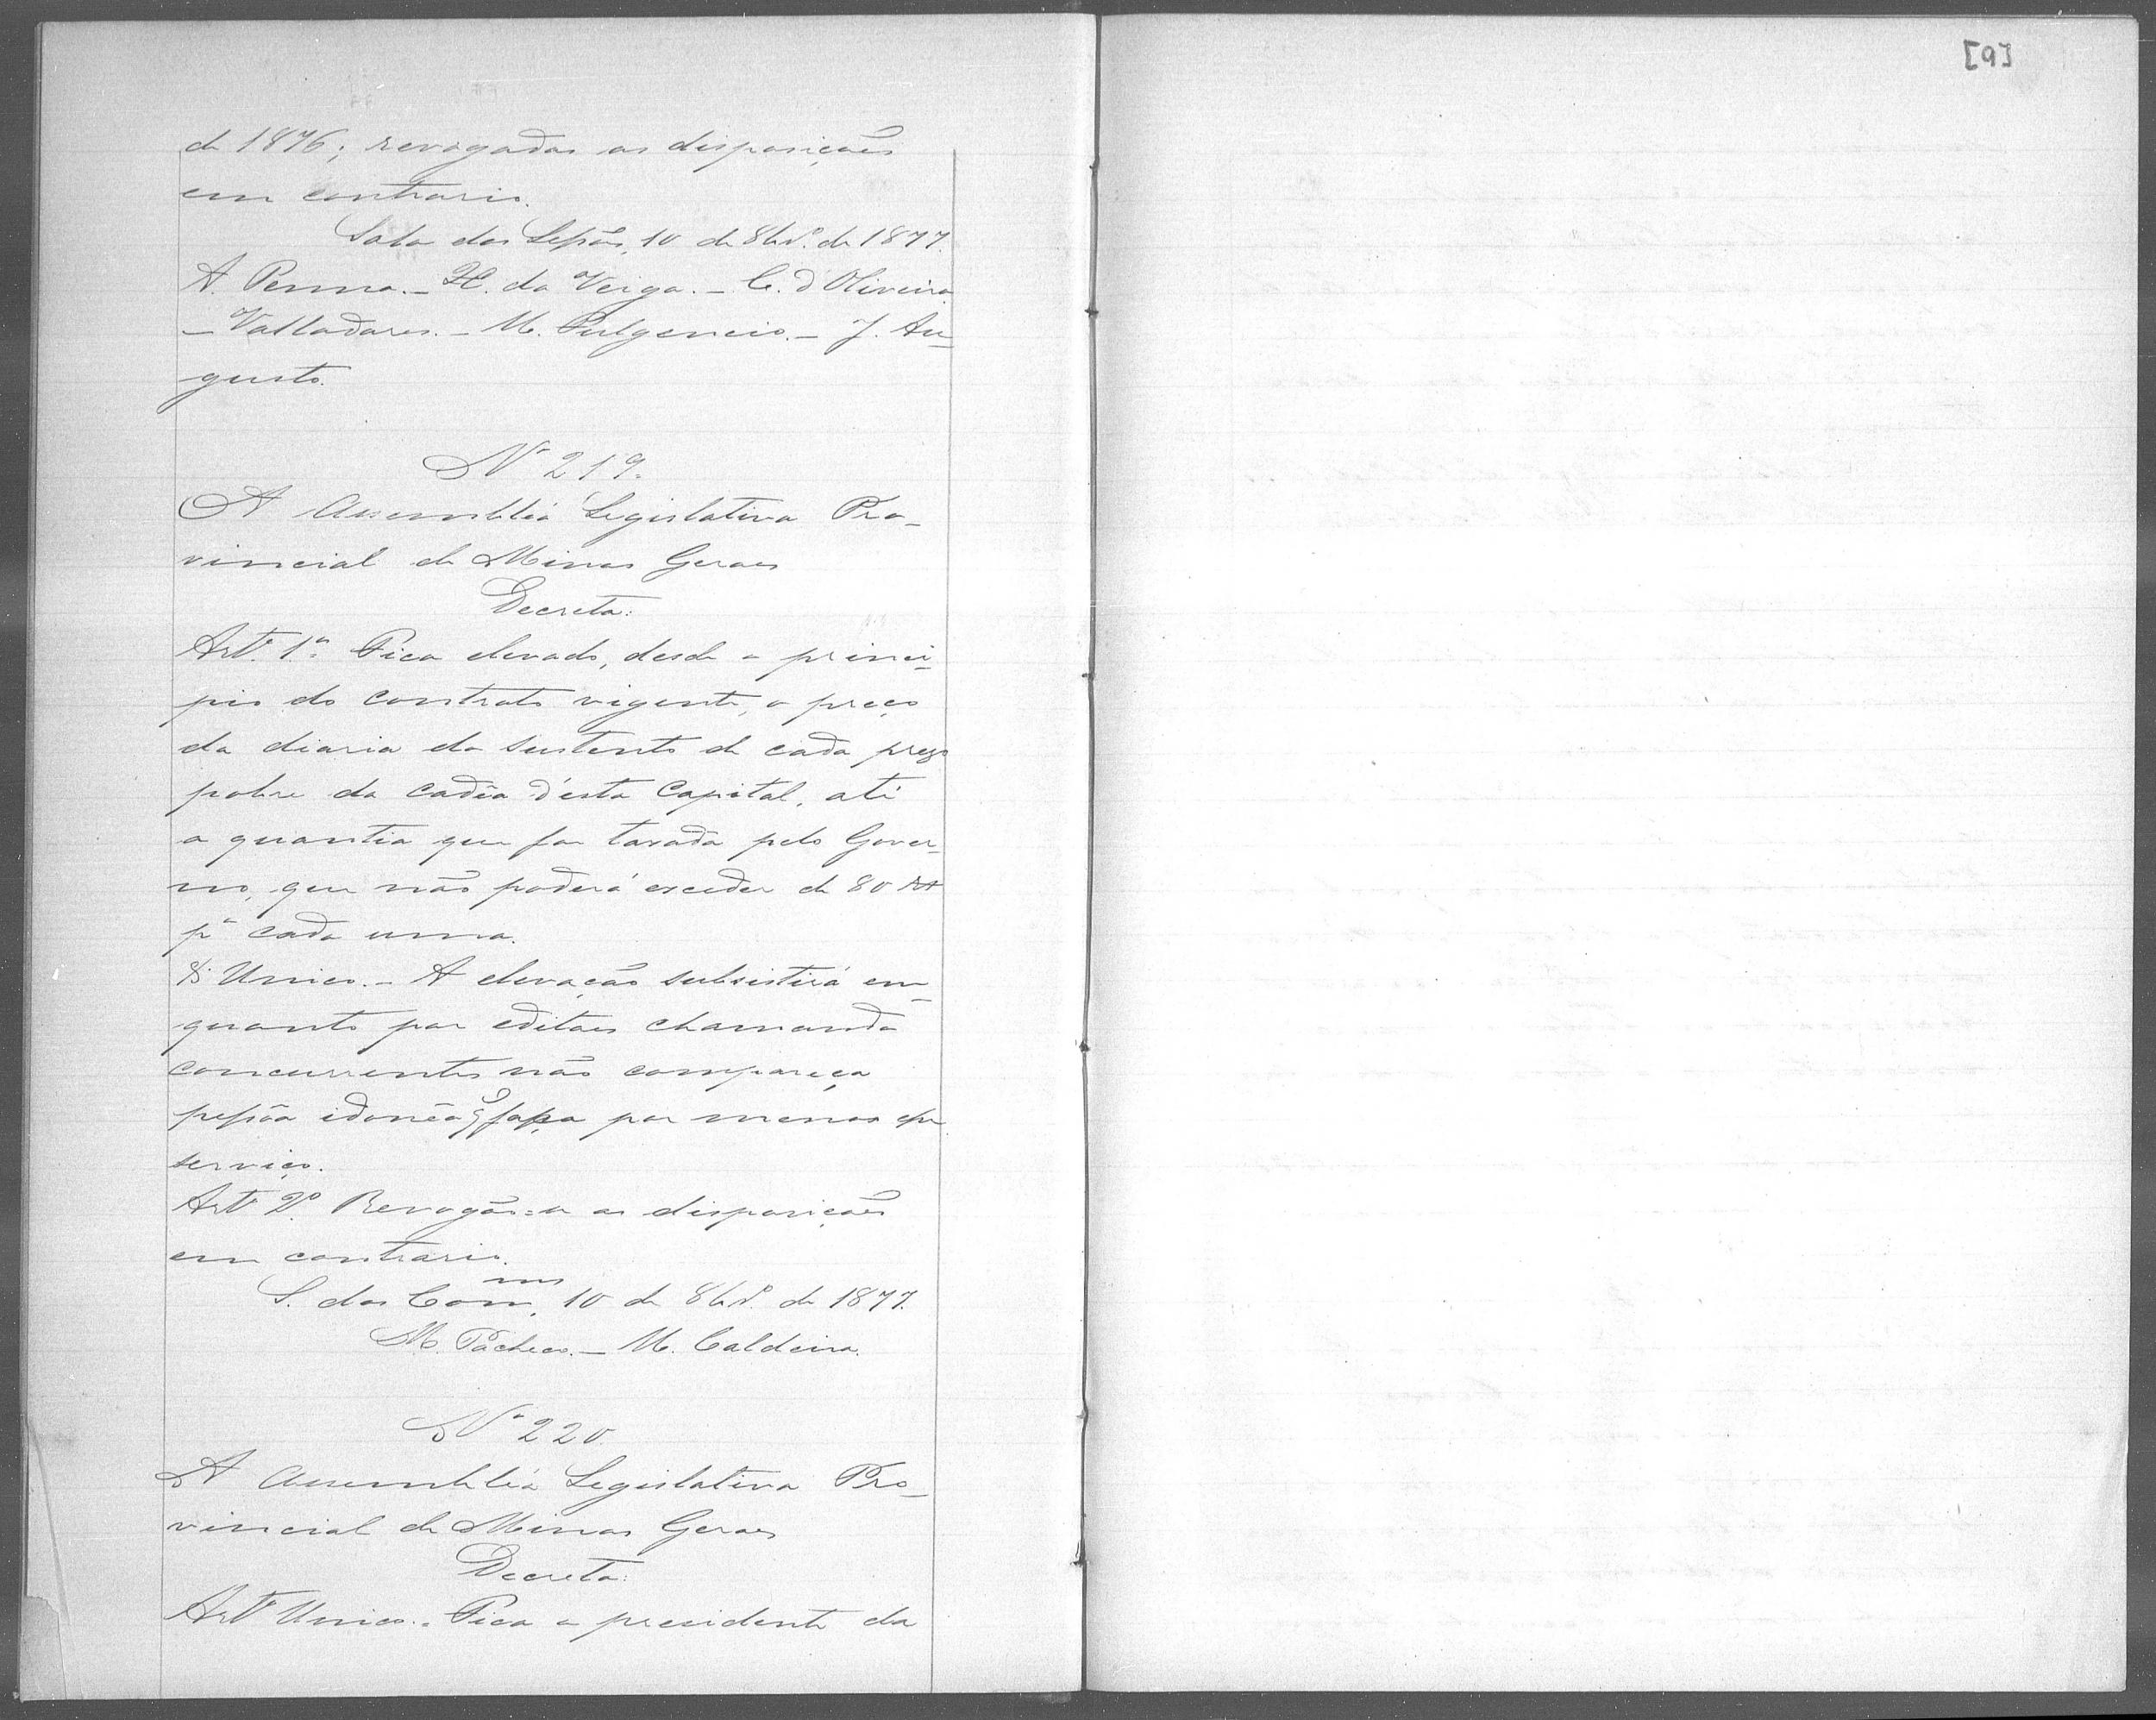 de 1876; revogadas as disposições
em contrario.
Sala das Sessões, 10 de 8br.º de 1877.
A. Penna. – H. da Veiga. – C. d'Oliveira
– Valladares. – M. Fulgencio. – J. Au-
gusto.
Nº 219.
A Assembléa Legislativa Pro-
vincial de Minas Geraes
Decreta:
Art. 1.º Fica elevado, desde o princi-
pio do contrato vigente, o preço
da diaria do sustento de cada prezo
pobre da cadêa d'esta Capital, até
a quantia que for taxada pelo Gover-
no, que não poderá exceder de 80 rs
pª cada uma.
§ Unico. – A elevação subsistirá em-
quanto por editaes chamando
concurrentes não compareça
pessôa idonêa q̃ faça por menos esse
serviço.
Art. 2º Revogão-se as disposições
em contrario.
S. das Com.mes, 10 de 8br.º de 1877.
M. Pacheco. – M. Caldeira.
Nº 220.
A Assembléa Legislativa Pro-
vincial de Minas Geraes
Decreta:
Art. Unico. Fica o presidente da
[9]